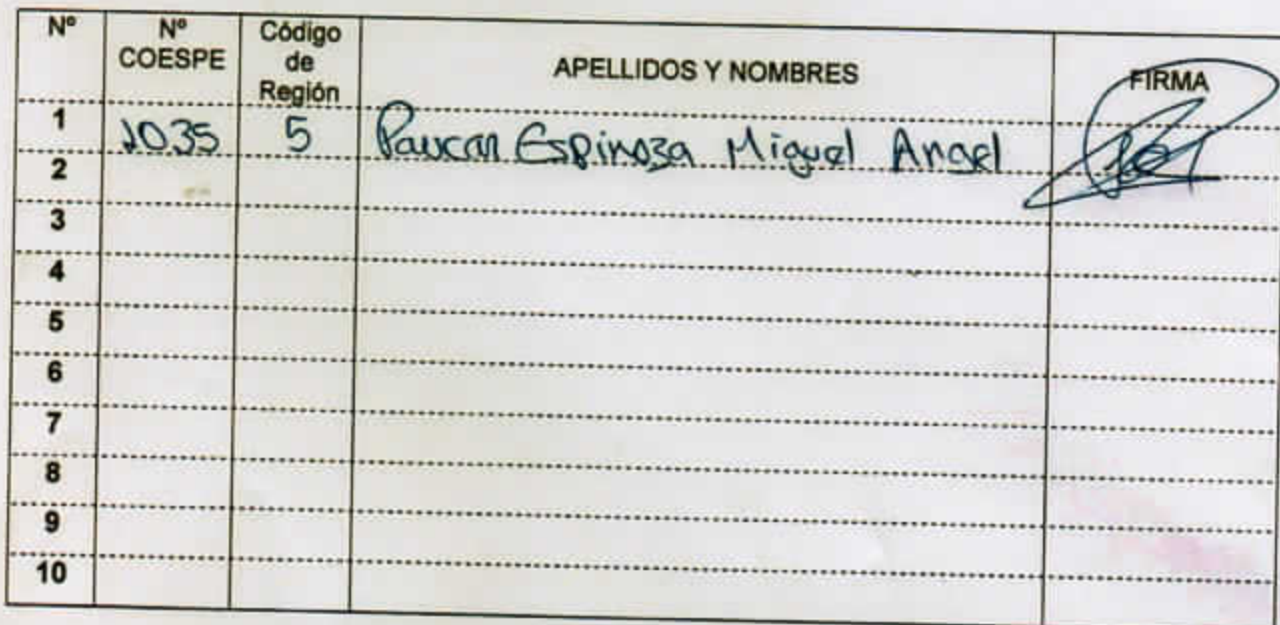 Nº Nº COESPE Código de Región APELLIDOS Y NOMBRES FIRMA
1 1035 5 Paucar Espinoza Miguel Angel
2
3
4
5
6
7
8
9
10